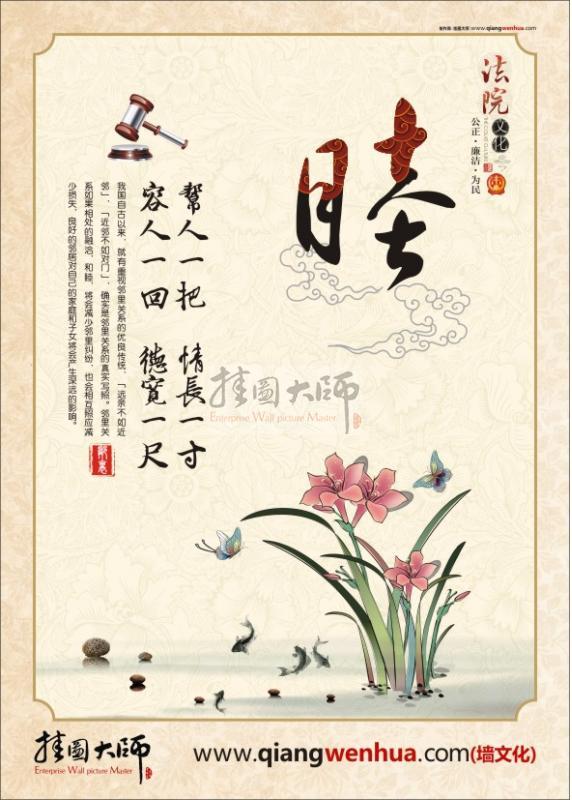 制作商:挂图大师:www.qiangwenhua.com
法院
文化
公正·廉洁·为民
睦
幫人一把 情長一寸
容人一回 德寬一尺
我国自古以来，就有重视邻里关系的优良传统，「远亲不如近
邻」，「近邻不如对门」，确实是邻里关系的真实写照。邻里关
系如果相处的融洽、和睦，将会减少邻里纠纷，也会相互照应减
少损失，良好的邻居对自己的家庭和子女将会产生深远的影响。
挂圖大師
Enterprise Wall picture Master
挂圖大師
Enterprise Wall picture Master
www.qiangwenhua.com(墙文化)